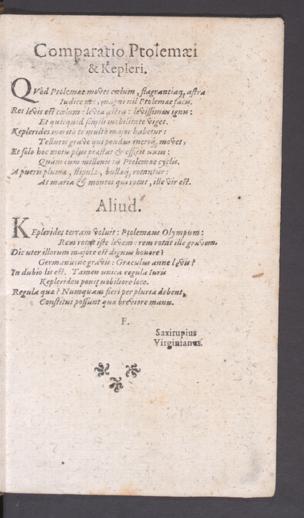 Comparatio Ptolemæi
& Kepleri.
QVòd Ptolemæe moves cœlum, flagrantiaq; astra
Iudice me, magni nil Ptolemæe facis.
Res levis est cœlum: levia astra: levissimus ignis:
Et quicquid simili mobilitate viget.
Keplerides meritò te multò major habetur:
Telluris grave qui pondus inersq; movet,
Et solo hoc motu plus præstat & efficit unus:
Quàm cum millenis tu Ptolemæe cyclis.
A pueris pluma, stipula, bullæq; rotantur:
At maria & montes qui rotat, ille vir est.
Aliud.
KEplerides terram volvit: Ptolemæus Olympum:
Rem rotat iste levem: rem rotat ille gravem.
Dic uter illorum majore est dignus honore?
Germanusne gravis: Græculus anne levis?
In dubio lis est. Tamen unica regula Iuris
Kepleridem ponet nobiliore loco.
Regula quæ? Numquam fieri per plura debent,
Constitui possunt quæ breviore manu.
F.
Saxirupius
Virginianus.